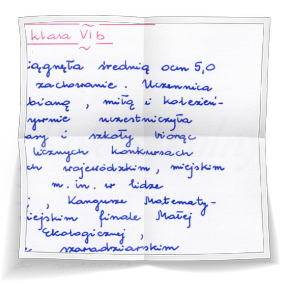 klasa VI b
iągnęła średnią ocen 5,0
zachowanie. Uczennica
bianą, miłą i koleżeń-
ywnie uczestniczyła
asy i szkoły biorąc
licznych konkursach
ch wojewódzkim, miejskim
m.in. w lidze
, Kangurze Matematy-
iejskim finale Małej
Ekologicznej,
szaradziarskim